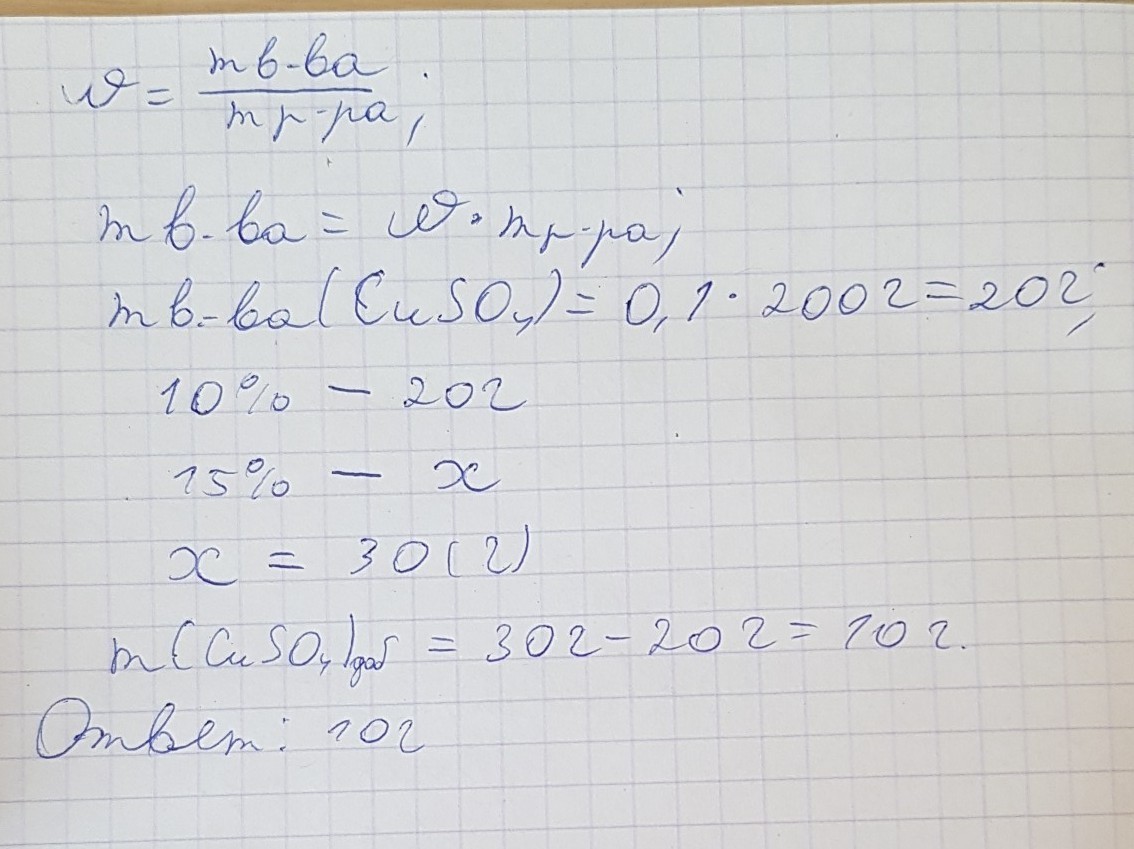 ω = m в-ва / m р-ра;
m в-ва = ω · m р-ра;
m в-ва (CuSO₄) = 0,1 · 200г = 20г;
10% – 20г
15% – x
x = 30 (г)
m(CuSO₄)доб = 30г – 20г = 10г.
Ответ: 10г